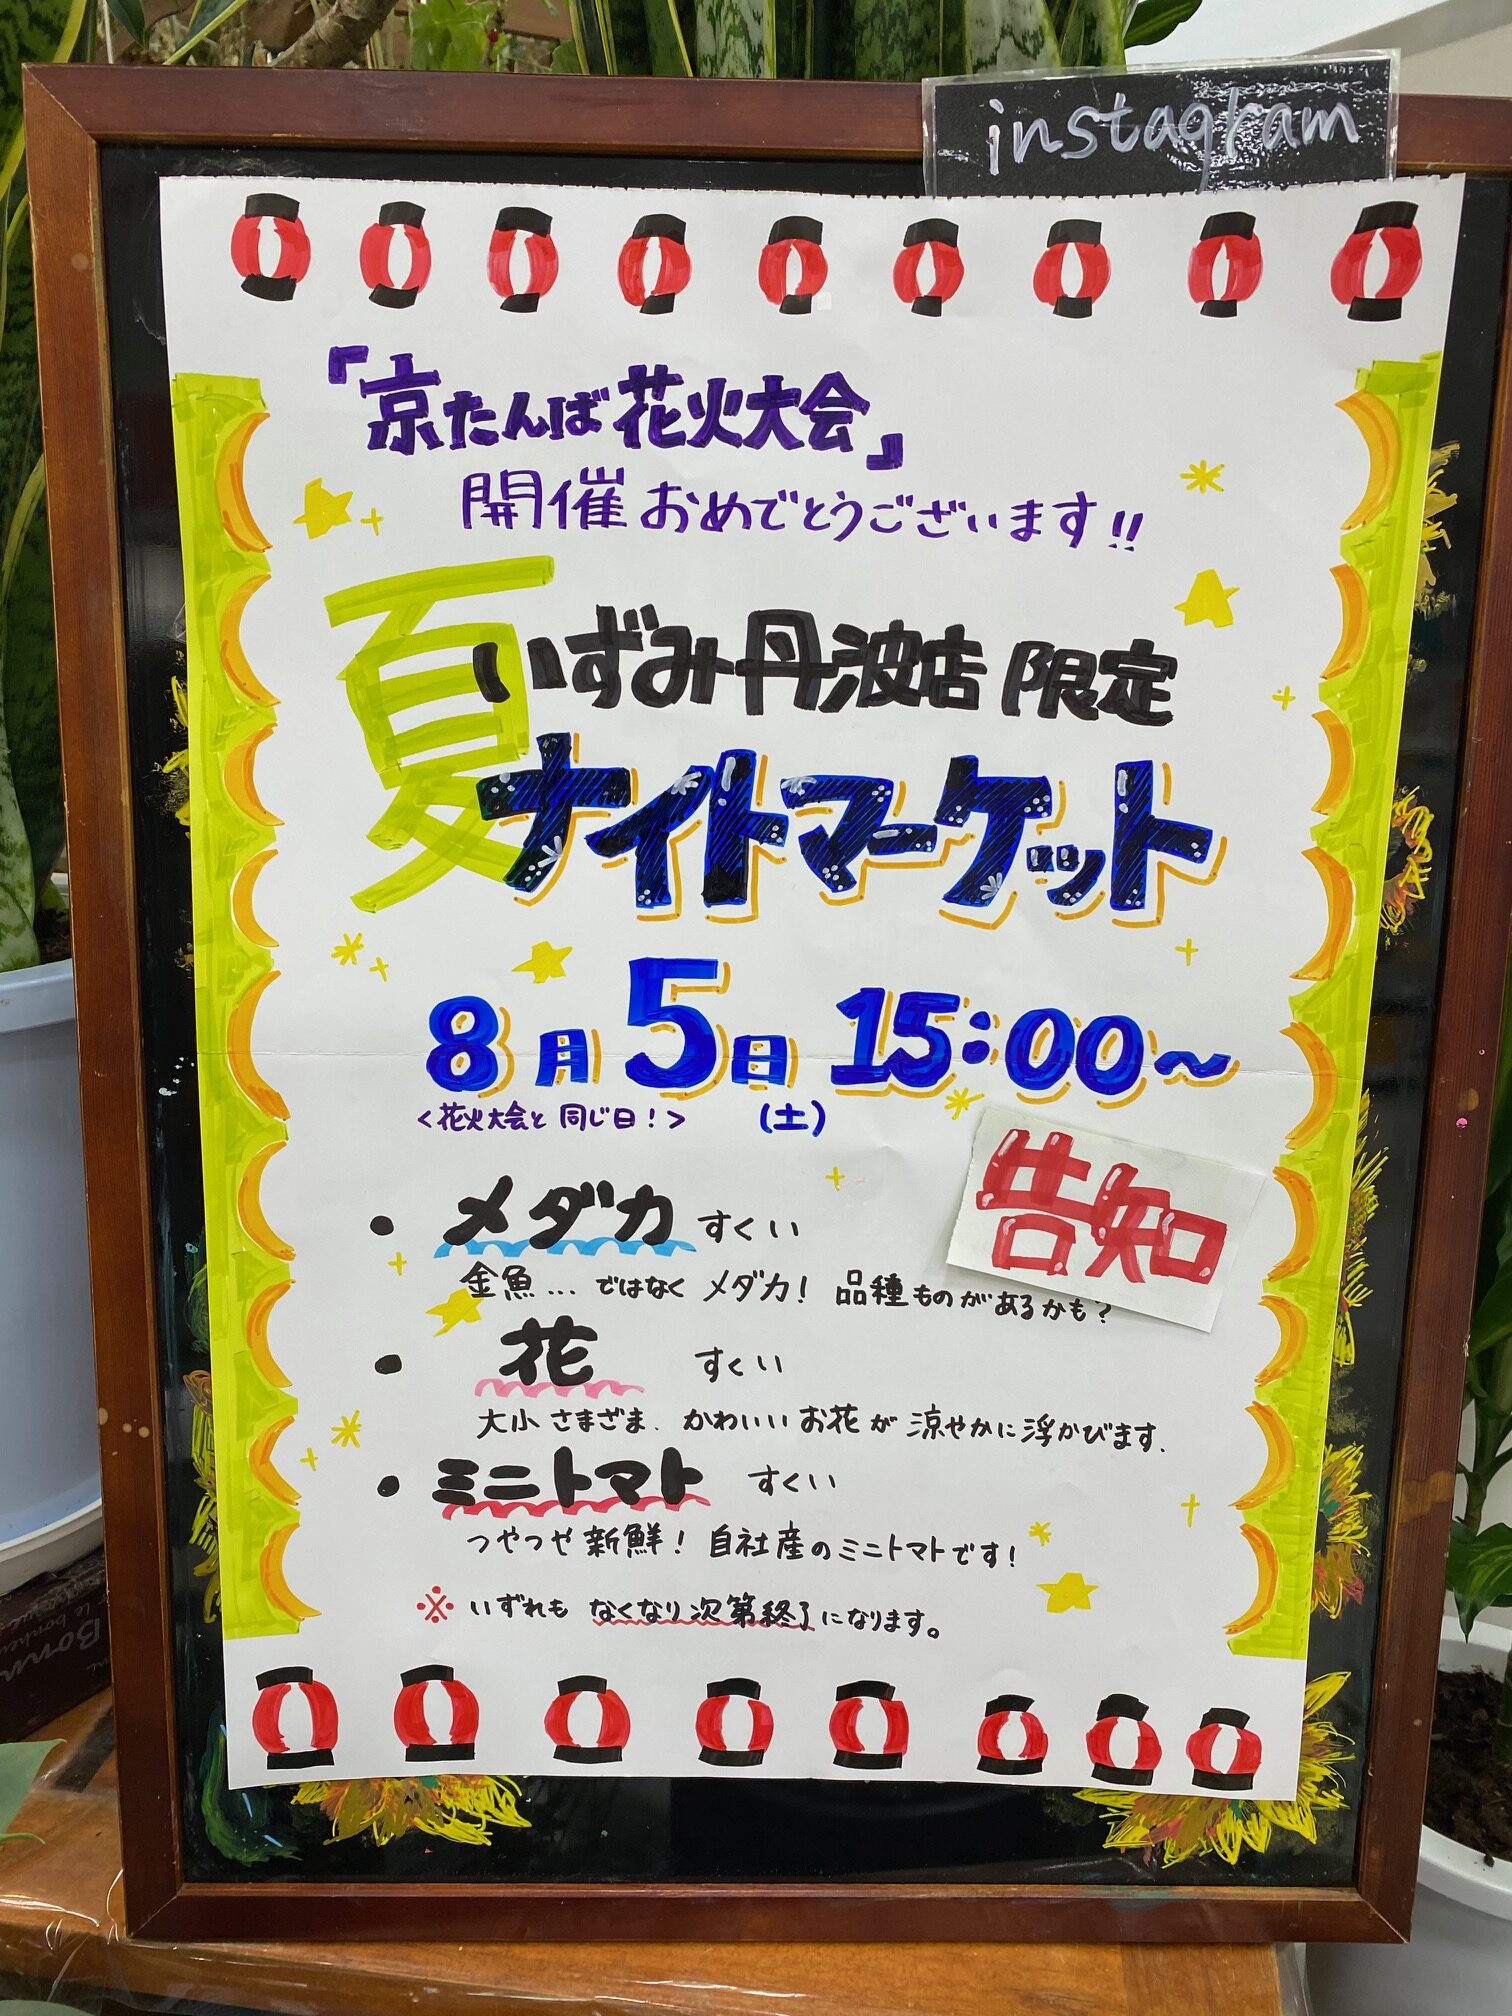 instagram
「京たんば花火大会」
開催おめでとうございます!!
夏
いずみ丹波店 限定
ナイトマーケット
8月5日 15:00～
<花火大会と同じ日!> (土)
告知
• メダカ すくい
金魚...ではなく メダカ! 品種ものがあるかも?
• 花 すくい
大小さまざま、かわいいお花が涼やかに浮かびます.
• ミニトマト すくい
つやつや新鮮! 自社産のミニトマトです!
※ いずれも なくなり次第終了になります。